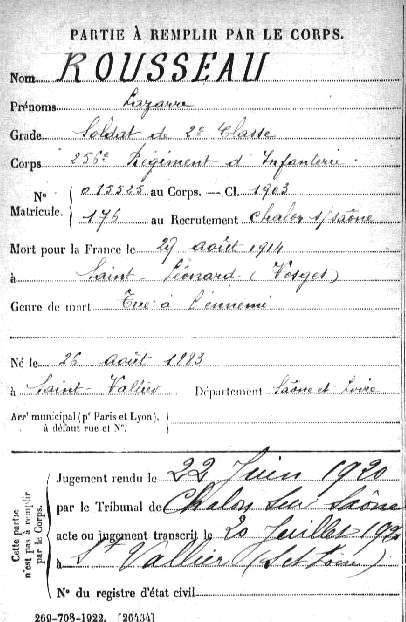 PARTIE À REMPLIR PAR LE CORPS.
Nom ROUSSEAU
Prénoms Lazarre
Grade Soldat de 2e Classe
Corps 256e Régiment d'Infanterie
N° Matricule. { 013525 au Corps. — Cl. 1903
176 au Recrutement Chalon s/Saône
Mort pour la France le 29 août 1914
à Saint-Léonard (Vosges)
Genre de mort Tué à l'ennemi
Né le 26 août 1883
à Saint-Vallier Département Saône et Loire
Arr' municipal (p' Paris et Lyon),
à défaut rue et N°.
Cette partie n'est pas à remplir par le Corps.
Jugement rendu le 22 Juin 1920
par le Tribunal de Chalon sur Saône
acte ou jugement transcrit le 20 Juillet 1920
à St Vallier (S et Loire)
N° du registre d'état civil
269-708-1922. [26434]